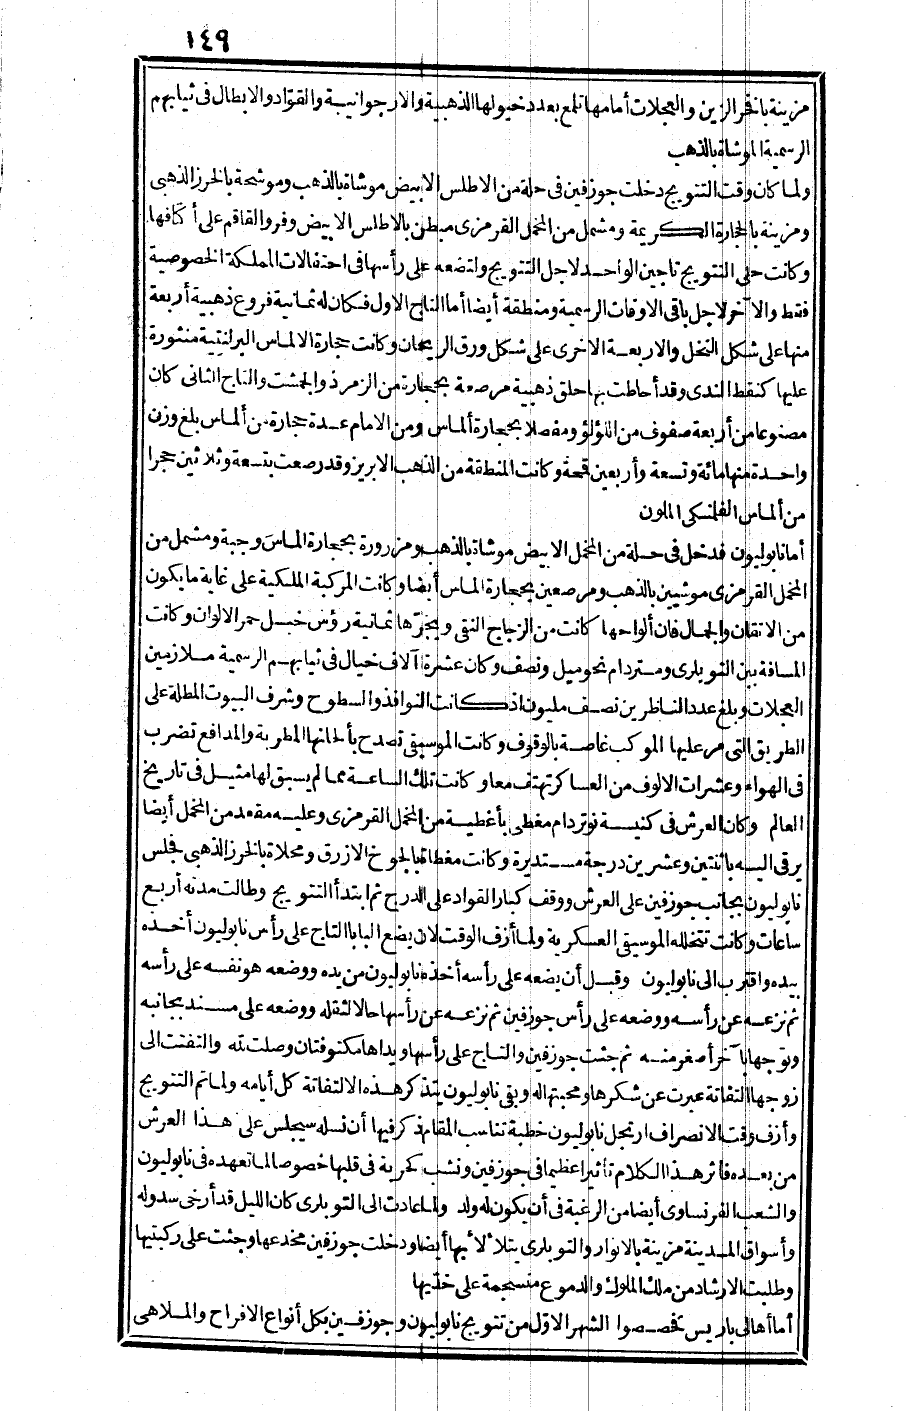 ١٤٩
مزينة بافخر الزين والعجلات أمامها تلمع بعدد خيولها الذهبية والارجوانية والقواد والابطال فى ثيابهم
الرسمية الموشاة بالذهب
ولما كان وقت التتويج دخلت جوزفين فى حلة من الاطلس الابيض موشاة بالذهب وموشحة بالخرز الذهبى
ومزينة بالحجارة الكريمة ومشمل من المخمل القرمزى مبطن بالاطلس الابيض وفرو القاقم على أكتافها
وكانت حلى التتويج تاجين الواحد لاجل التتويج ولتضعه على رأسها فى احتفالات المملكة الخصوصية
فقط والآخر لاجل باقى الاوقات الرسمية ومنطقة أيضا أما التاج الاول فكان له ثمانية فروع ذهبية أربعة
منها على شكل النخل والاربعة الاخرى على شكل ورق الريحان وكانت حجارة الالماس البرلنتية منثورة
عليها كنقط الندى وقد أحاطت بها حلق ذهبية مرصعة بحجارة من الزمرذ والجمشت والتاج الثانى كان
مصنوعا من أربعة صفوف من اللؤلؤ ومفصلا بحجارة ألماس ومن الامام عدة حجارة من ألماس بلغ وزن
واحدة منها مائة وتسعة وأربعين قمحة وكانت المنطقة من الذهب الابريز وقد رصعت بتسعة وثلاثين حجرا
من ألماس الفلنسكى الملون
أما نابوليون فدخل فى حلة من المخمل الابيض موشاة بالذهب ومزرورة بحجارة الماس وجبة ومشمل من
المخمل القرمزى موشيين بالذهب ومرصعين بحجارة الماس أيضا وكانت المركبة الملكية على غاية ما يكون
من الاتقان والجمال فان ألواحها كانت من الزجاج النقى ويجرّها ثمانية رؤس خيل حمر الالوان وكانت
المسافة بين التويلرى ونتردام نحو ميل ونصف وكان عشرة آلاف خيال فى ثيابهم الرسمية ملازمين
العجلات وبلغ عدد الناظرين نصف مليون اذ كانت النوافذ والسطوح وشرف البيوت المطلة على
الطريق التى مر عليها الموكب غاصة بالوقوف وكانت الموسيقى تصدح بألحانها المطربة والمدافع تضرب
فى الهواء وعشرات الالوف من العساكر تهتف معا وكانت تلك الساعة مما لم يسبق لها مثيل فى تاريخ
العالم وكان العرش فى كنيسة نوتردام مغطى بأغطية من المخمل القرمزى وعليه مقعد من المخمل أيضا
يرقى اليه باثنتين وعشرين درجة مستديرة وكانت مغطاة بالجوخ الازرق ومحلاة بالخرز الذهبى فجلس
نابوليون بجانب جوزفين على العرش ووقف كبار القواد على الدرج ثم ابتدأ التتويج وطالت مدته أربع
ساعات وكانت تتخلله الموسيقى العسكرية ولما أزف الوقت لان يضع البابا التاج على رأس نابوليون أخذه
بيده واقترب الى نابوليون وقبل أن يضعه على رأسه أخذه نابوليون من يده ووضعه هو نفسه على رأسه
ثم نزعه عن رأسه ووضعه على رأس جوزفين ثم نزعه عن رأسها حالا لثقله ووضعه على مسند بجانبه
وتوجها بآخر أصغر منه ثم جثت جوزفين والتاج على رأسها ويداها مكتوفتان وصلت لله والتفتت الى
زوجها التفاتة عبرت عن شكرها ومحبتها له وبقى نابوليون يتذكر هذه الالتفاتة كل أيامه ولما تم التتويج
وأزف وقت الانصراف ارتجل نابوليون خطبة تناسب المقام ذكر فيها أن نسله سيجلس على هذا العرش
من بعده فأثر هذا الكلام تأثيرا عظيما فى جوزفين ونشب كحربة فى قلبها خصوصا لما تعهده فى نابوليون
والشعب الفرنساوى أيضا من الرغبة فى أن يكون له ولد ولما عادت الى التويلرى كان الليل قد أرخى سدوله
وأسواق المدينة مزينة بالانوار والتويلرى يتلألأ بها أيضا ودخلت جوزفين مخدعها وجثت على ركبتيها
وطلبت الارشاد من ملك الملوك والدموع منسجمة على خدّيها
أما أهالى باريس فخصصوا الشهر الاوّل من تتويج نابوليون وجوزفين بكل أنواع الافراح والملاهى